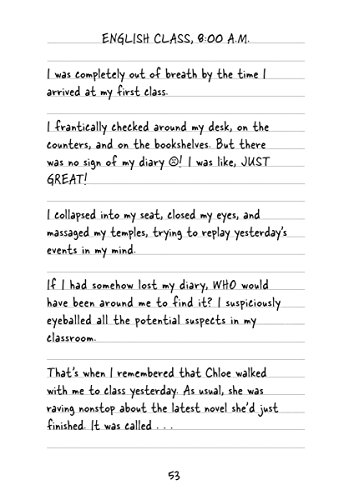 ENGLISH CLASS, 8:00 A.M.
I was completely out of breath by the time I
arrived at my first class.
I frantically checked around my desk, on the
counters, and on the bookshelves. But there
was no sign of my diary ☹! I was like, JUST
GREAT!
I collapsed into my seat, closed my eyes, and
massaged my temples, trying to replay yesterday's
events in my mind.
If I had somehow lost my diary, WHO would
have been around me to find it? I suspiciously
eyeballed all the potential suspects in my
classroom.
That's when I remembered that Chloe walked
with me to class yesterday. As usual, she was
raving nonstop about the latest novel she'd just
finished. It was called . . .
53